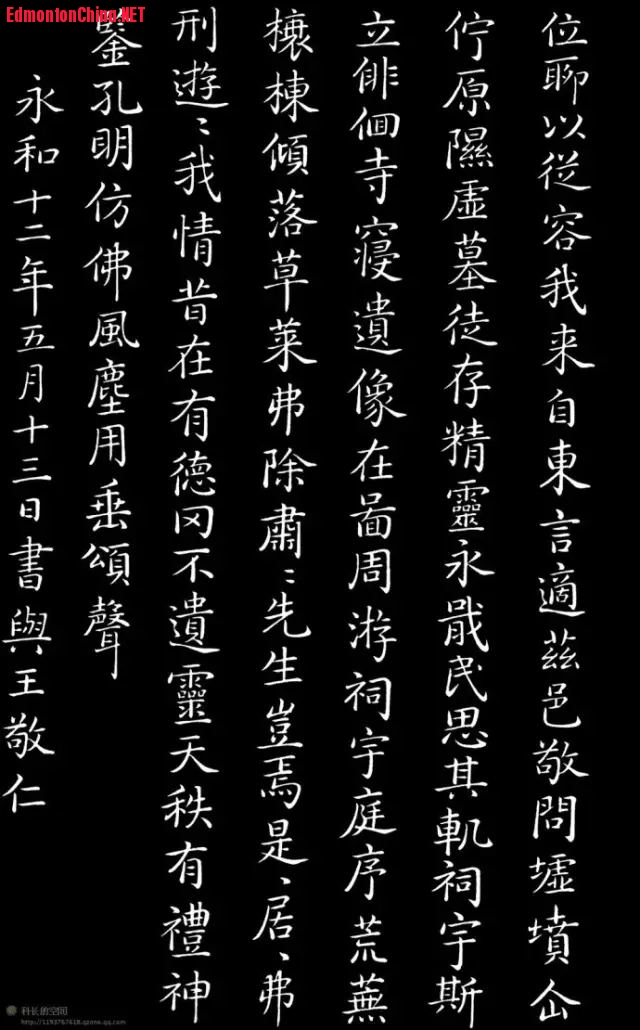 EdmontonChina.NET
位聊以從容我来自東言適茲邑敬問墟墳企
佇原隰虛墓徒存精靈永戢民思其軌祠宇斯
立俳佪寺寑遺像在啚周游祠宇庭序荒蕪
榱棟傾落草莱弗除肅〻先生豈焉是、居、弗
刑遊〻我情昔在有德罔不遺靈天秩有禮神
鑒孔明仿佛風塵用垂頌聲
永和十二年五月十三日書與王敬仁
科长的空间